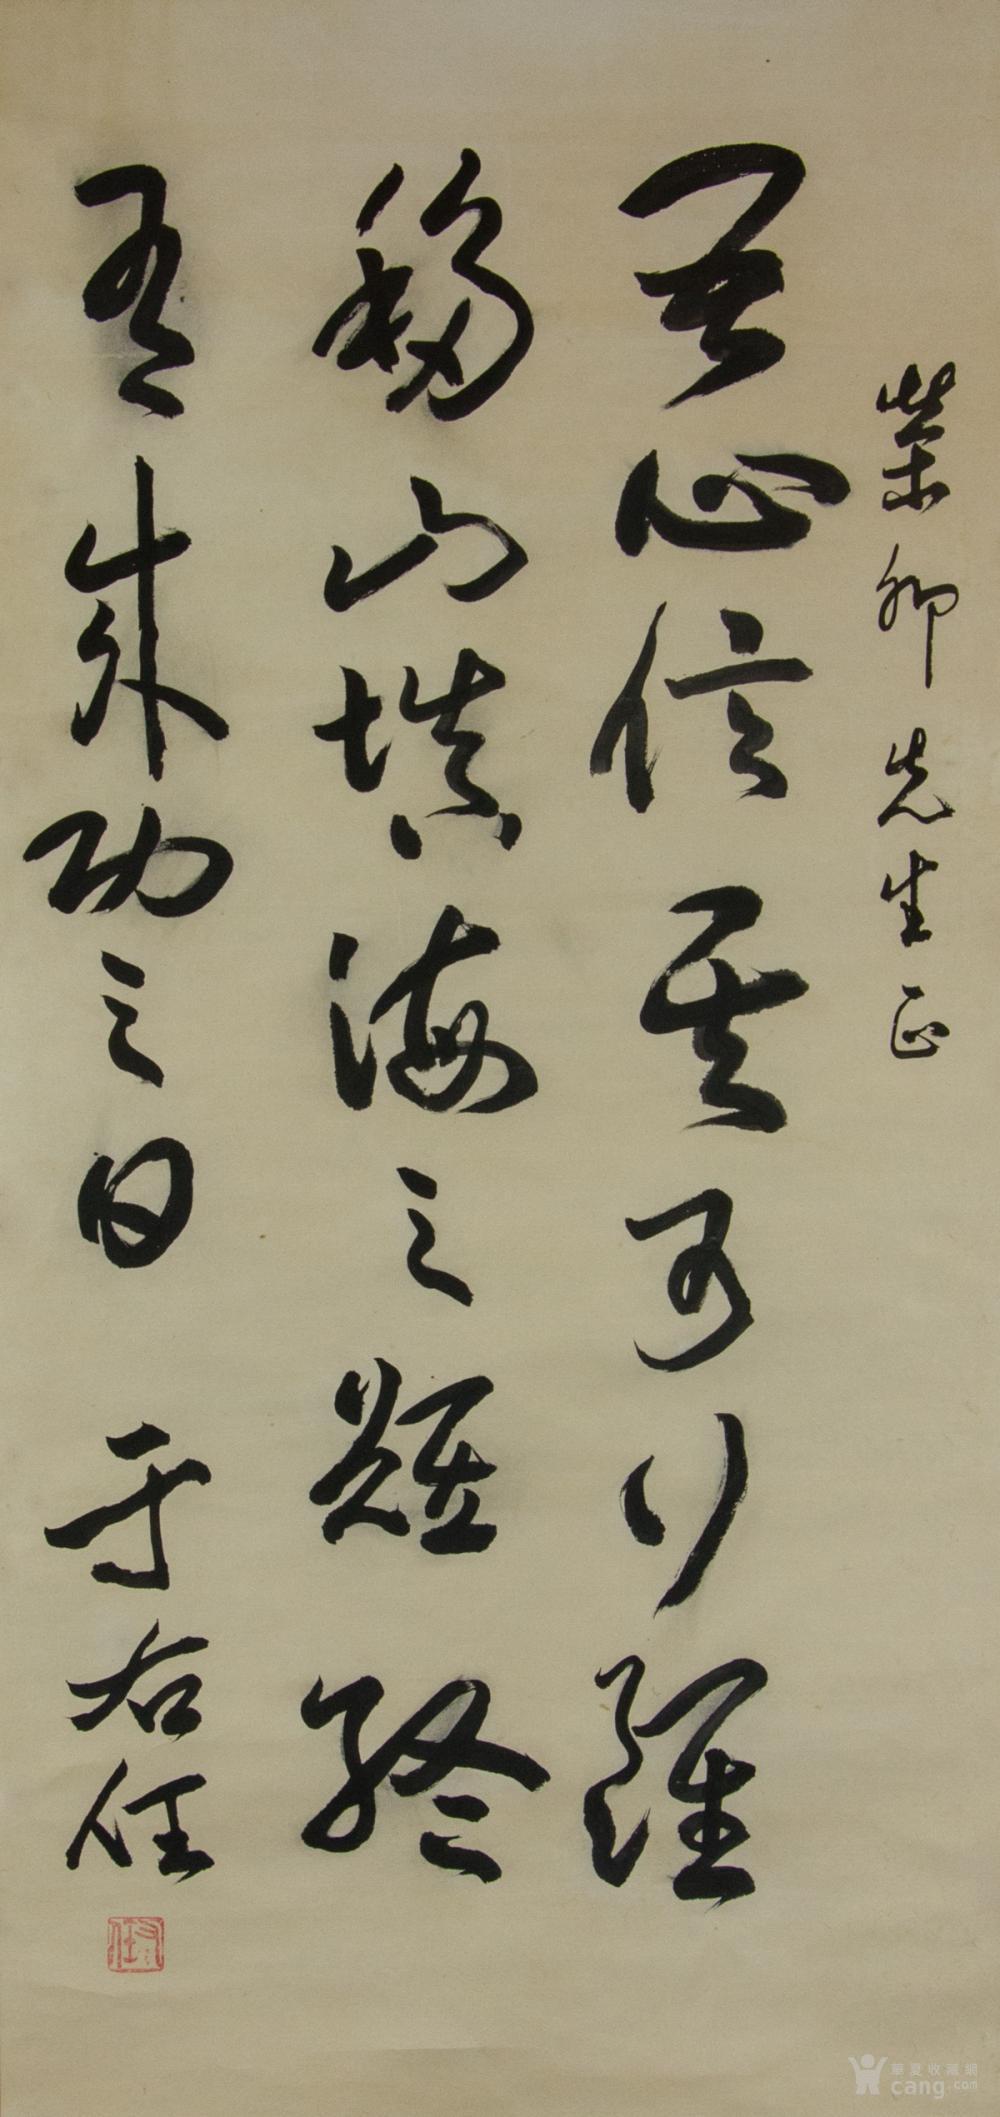 榮卿先生正
吾心信其可行雖
移山填海之難終
有成功之日 于右任
右任
華夏收藏網
cang.com